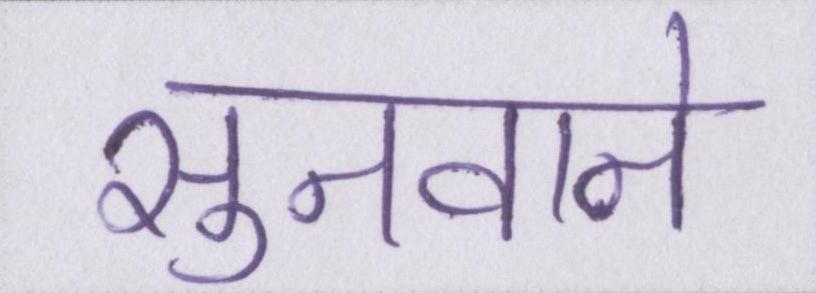 सुनवाने